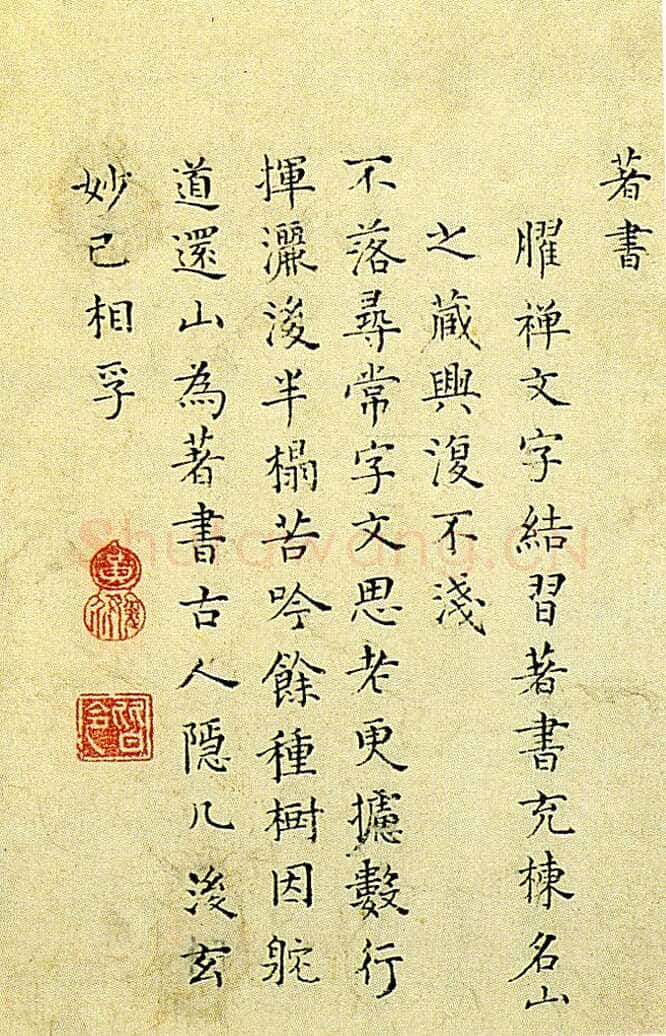 著書
臞禅文字結習著書充棟名山
之蔵興復不淺
不落尋常字文思老更攄數行
揮灑後半榻苦吟餘種樹因躭
道還山為著書古人隠几後玄
妙已相孚
Shufawang.CN